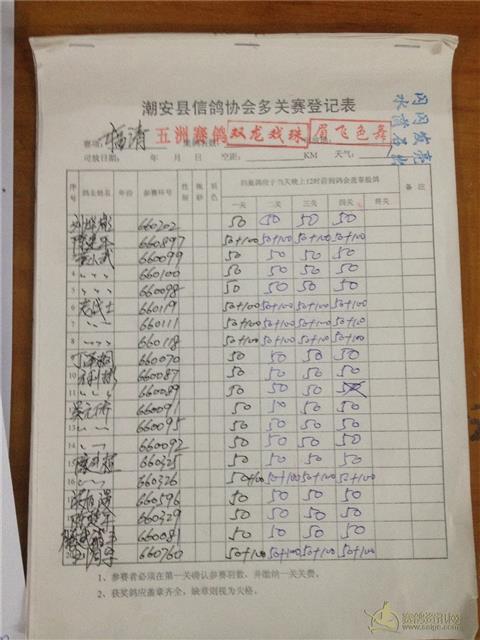 潮安县信鸽协会多关赛登记表
赛项： 福清 五洲赛鸽 双龙戏珠 眉飞色舞
司放日期： 年 月 日 空距： KM 天气：
序号 鸽主姓名 年份 参赛环号 性别 眼砂 羽色 归巢鸽应于当天晚上12时前到鸽会盖章验鸽 备注
一关 二关 三关 四关 终关
660202 50 50 50 50
660897 50+100 50+100 50+100 50+100
660099 50 50 50 50
4 〃 〃 〃 660100 50 50 50 50
5 〃 〃 〃 660098 50 50 50 50
6 660119 50+100 50+100 50+100 50+100
7 〃 〃 660111 50+100 50+100 50+100 50+100
8 〃 〃 660118 50+100 50+100 50+100 50+100
9 660070 50 50 50 50
10 660087 50 50 50 50
11 〃 〃 660089 50 50 50
660091 50 50 50 50
13 〃 〃 660095 50 50 50 50
14 〃 〃 660092 50 50 50 50
15 660325 50 50 50 50
16 〃 〃 660326 50+100 50+100 50+100 50+100
660596 50 50 50 50
660329 50 50 50 50
660081 50 50 50 50
660760 50+100 50+100 50+100 50+100
1、参赛者必须在第一关确认参赛羽数，并缴纳一关关费。
2、获奖鸽应盖章齐全，缺章则视为失格。
赛鸽资讯网
www.saige.com